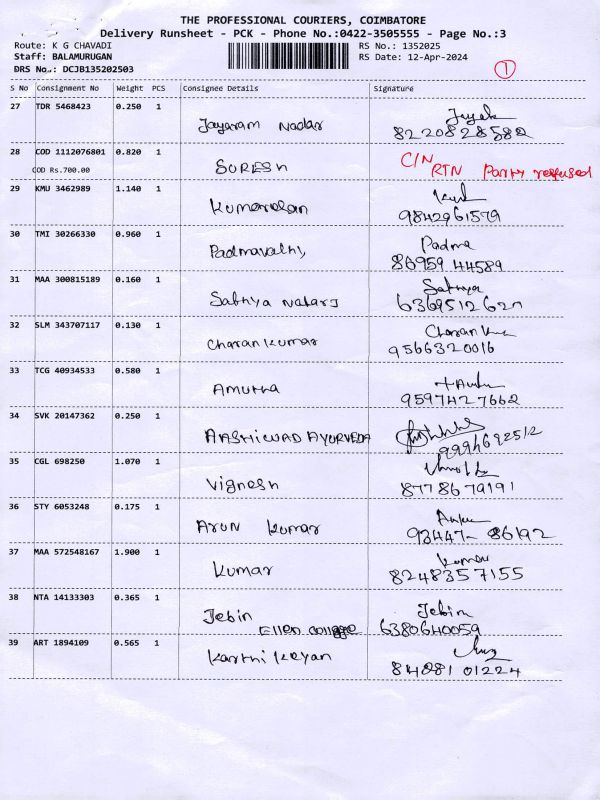 THE PROFESSIONAL COURIERS, COIMBATORE
Delivery Runsheet - PCK - Phone No.:0422-3505555 - Page No.:3
Route: K G CHAVADI RS No.: 1352025
Staff: BALAMURUGAN RS Date: 12-Apr-2024
DRS No.: DCJB135202503 1
S No Consignment No Weight PCS Consignee Details Signature
27 TDR 5468423 0.250 1 Jayaram Nadar
8220828582
28 COD 1112076801 0.820 1 SURESH C/N
COD Rs.700.00 RTN Party reffused
29 KMU 3462989 1.140 1 Kumaresan
9842961579
30 TMI 30266330 0.960 1 Padmavathi Padma
86959 44589
31 MAA 300815189 0.160 1 Sathya Nataraj Sathya
32 SLM 343707117 0.130 1 Charan Kumar
9566320016
33 TCG 40934533 0.580 1 Amutha
9597427662
34 SVK 20147362 0.250 1 AASHIWAD AYURVEDA
9994692512
35 CGL 698250 1.070 1 Vignesh
8778679191
36 STY 6053248 0.175 1 Arun Kumar
93447- 86192
37 MAA 572548167 1.900 1 Kumar Kumar
8248357155
38 NTA 14133303 0.365 1 Jebin Jebin
Ellen college 6380640059
39 ART 1894109 0.565 1 Karthi Keyan
84281 01224